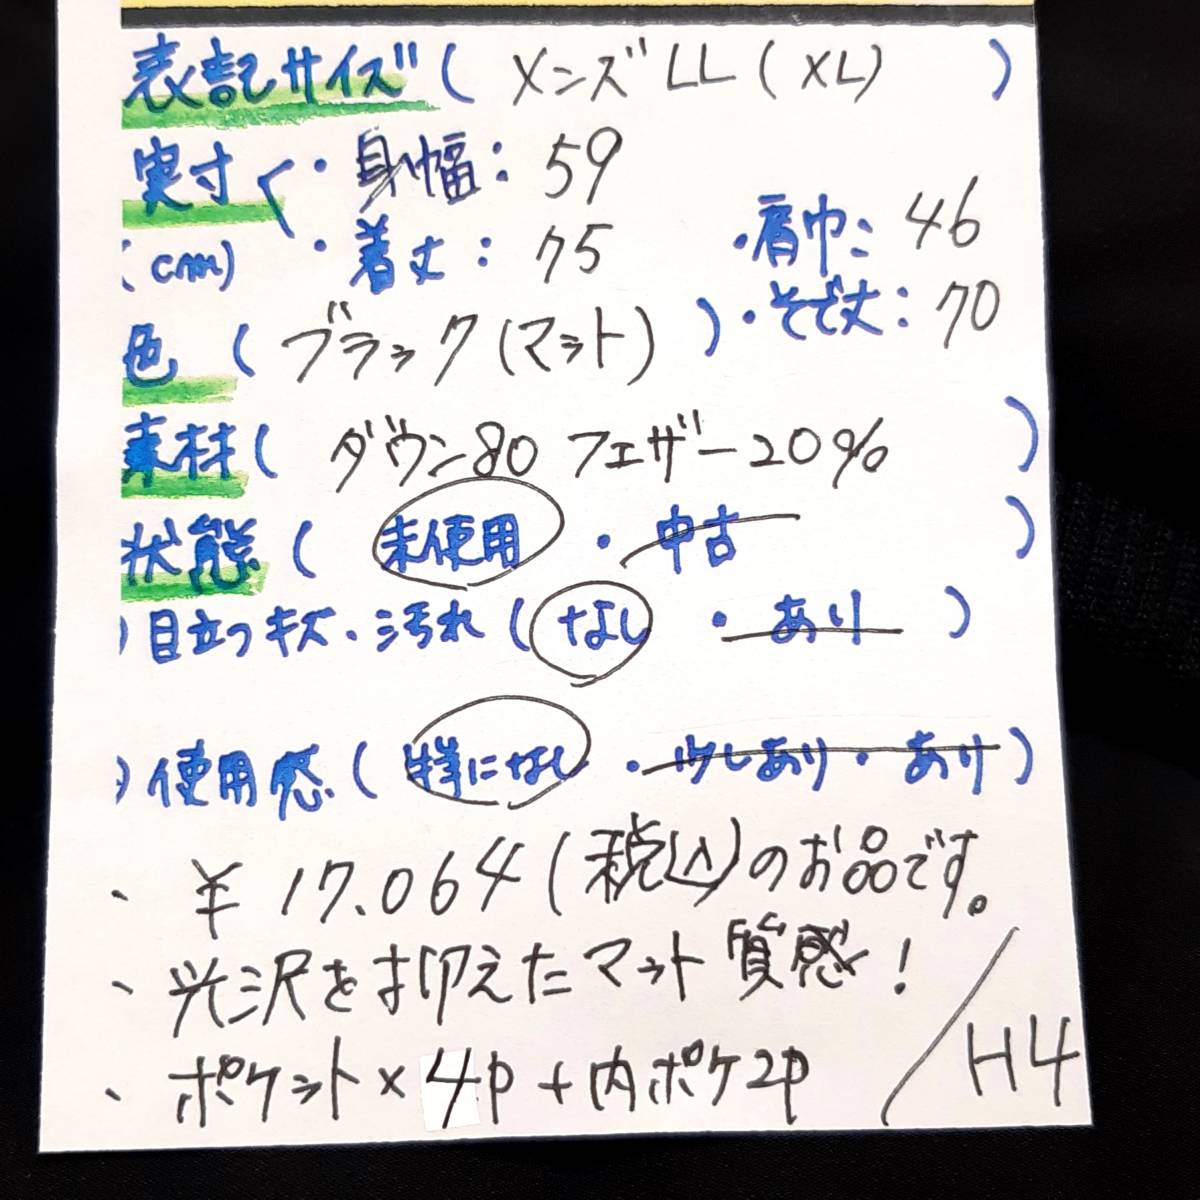 表記サイズ ( メンズ LL ( XL) )
実寸 ・身幅: 59
(cm) ・着丈: 75 ・肩巾: 46
・そで丈: 70
色 ( ブラック (マット) )
素材 ( ダウン80 フェザー20% )
状態 ( 未使用 ・ 中古 )
)目立つキズ・汚れ ( なし ・ あり )
)使用感 ( 特になし ・ 少しあり ・ あり )
、¥17.064 (税込)のお品です。
、光沢を抑えたマット質感!
、ポケット×4p+内ポケ2p
H4